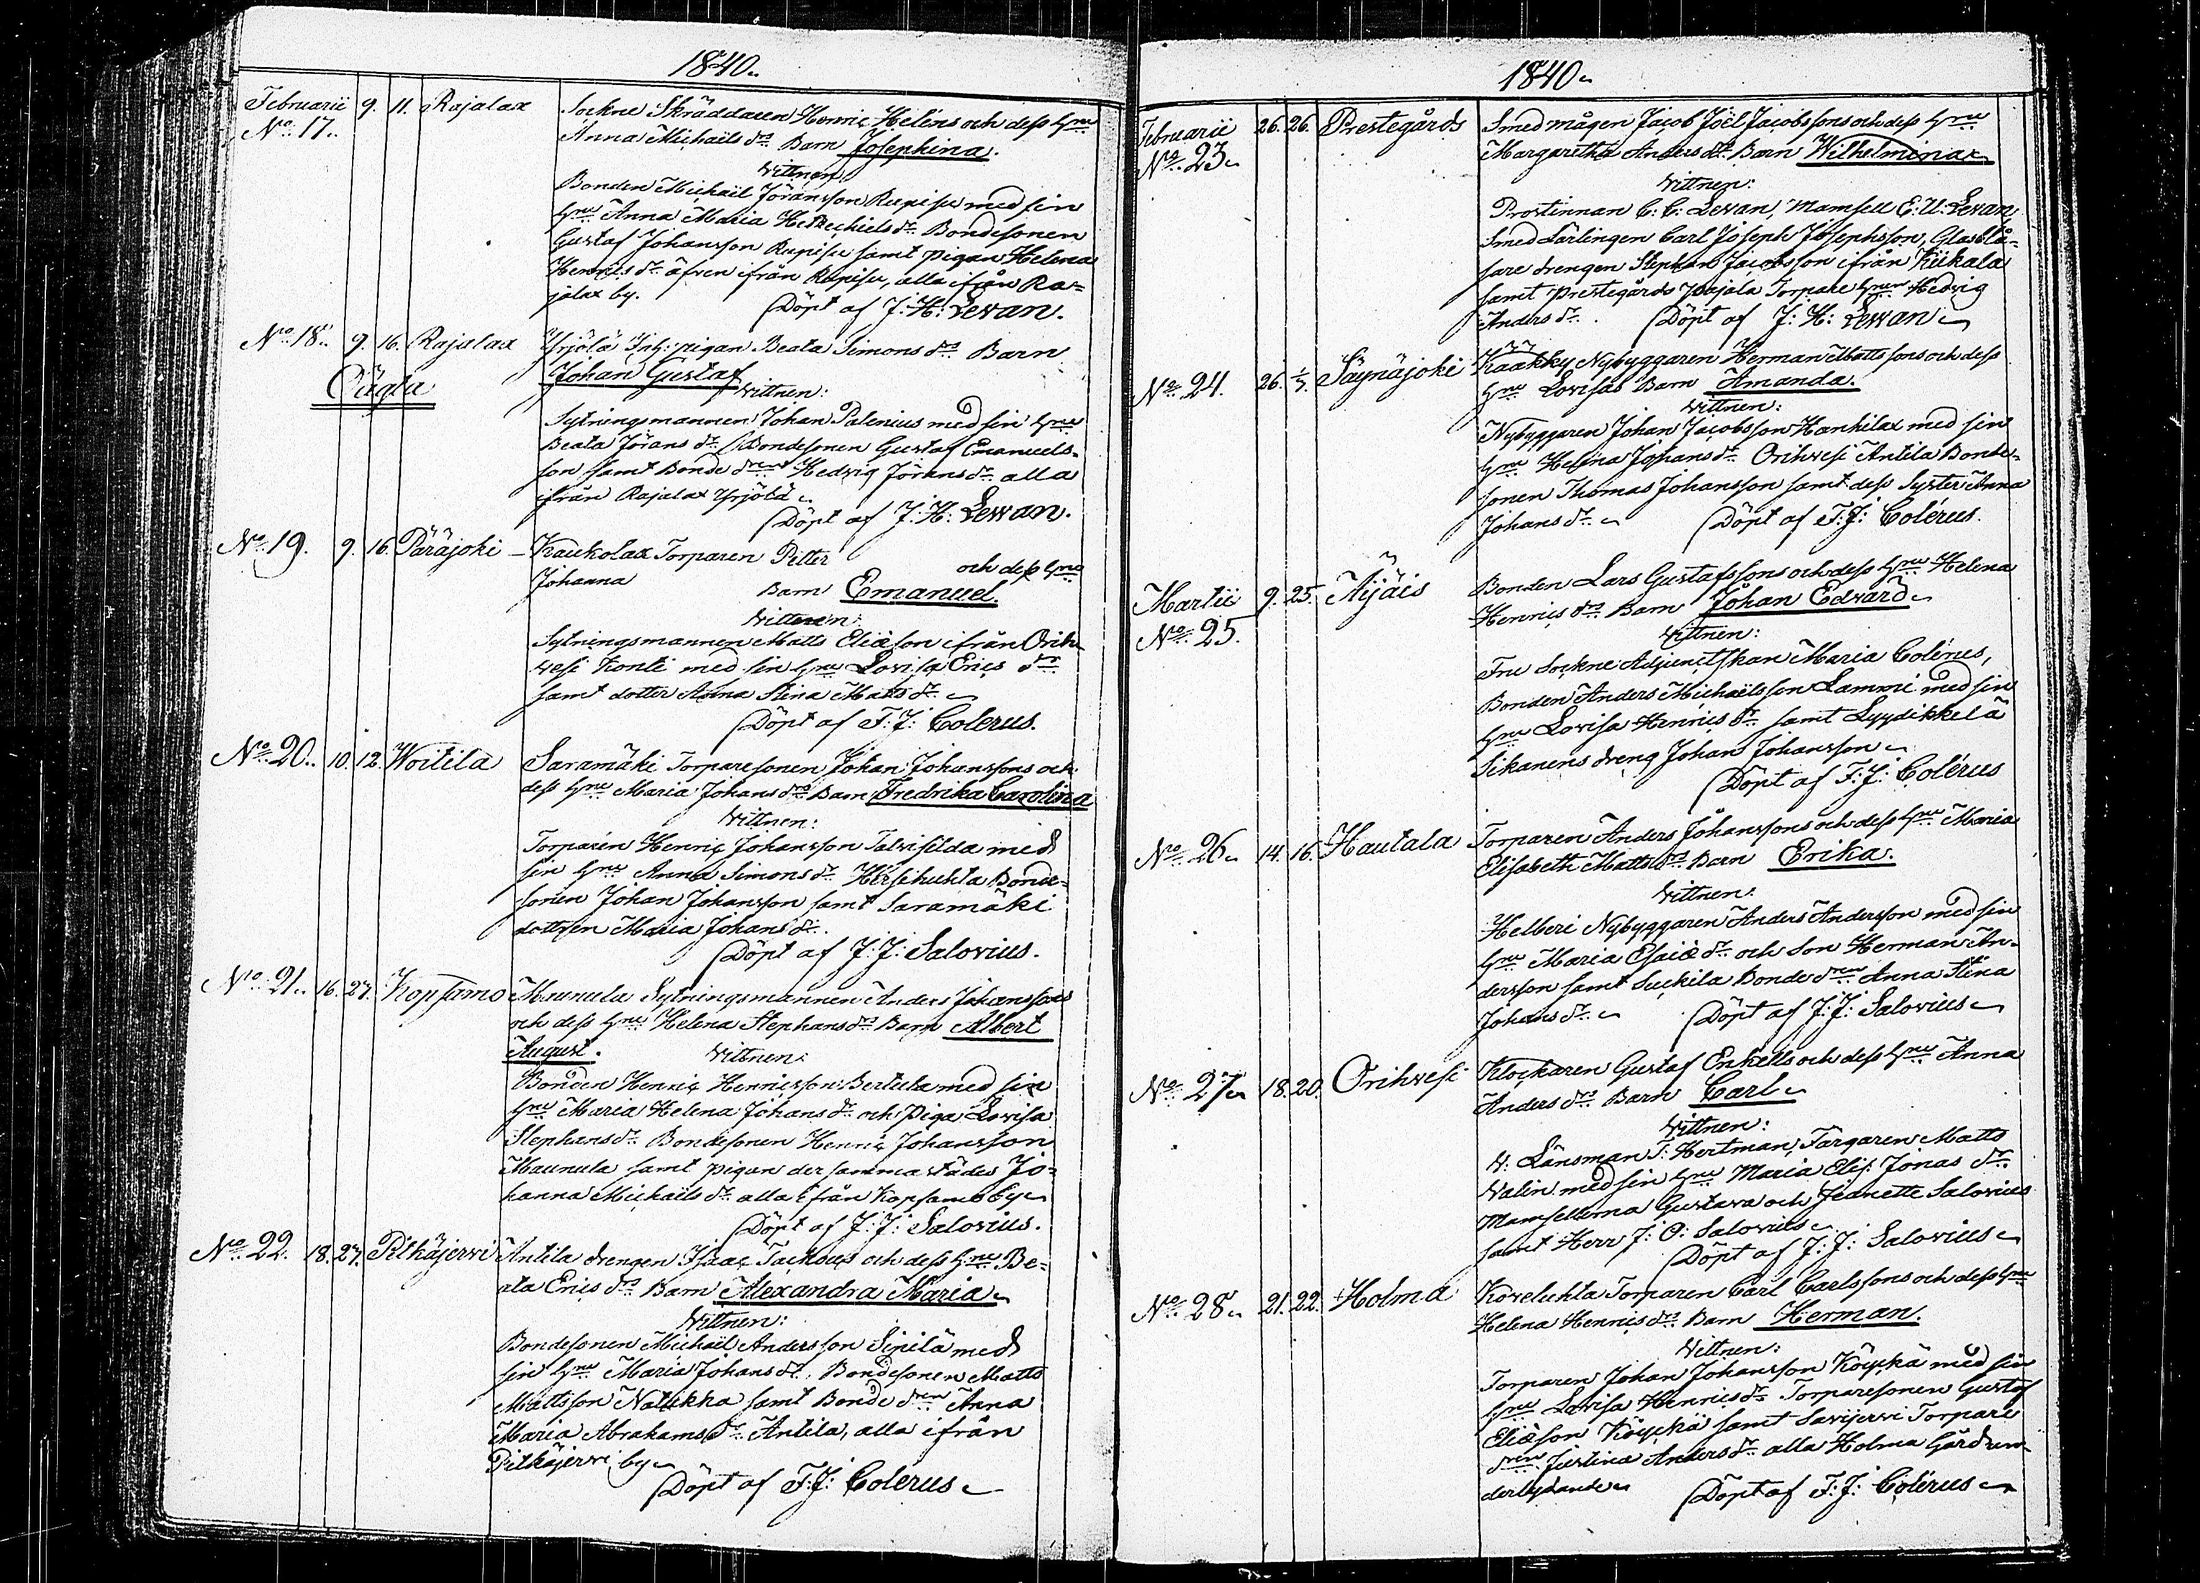 1840.
Februarii 9. 11. Rajalax Sockne Skräddaren Henric Heléns och dess Hru
No 17. Anna Michaëls drs Barn Josephina.
Vittnen:
Bonden Michaël Jöransson Rupisu med sin
Hru Anna Maria Hetzechiels dr Bondesonen
Gustaf Johansson Rupisu samt pigan Helena
Henrics dr äfven ifrån Rupisu, alla ifrån Ra=
jalax by. Döpt af J: H: Levan.
No 18. 9. 16. Rajalax Yrjölä Inh: pigan Beata Simons drs Barn
Oägta Johan Gustaf
Vittnen:
Sytningsmannen Johan Palenius med sin Hru
Beata Jörans dr Bondesonen Gustaf Emanuels-
son samt Bonde dren Hedvig Jörans dr alla
ifrån Rajalax Yrjölä
Döpt af J: H: Levan.
No 19. 9. 16. Päräjoki Kaukolax Torparen Petter och dess Hru
Johanna Barn Emanuel.
Vittnen:
Sytningsmannen Matts Eliæson ifrån Orih-
vesi Konti med sin Hru Lovisa Erics dr
samt dotter Anna Stina Matts dr
Döpt af F: J: Colerus.
No 20. 10. 12. Woitila Saramäki Torparesonen Johan Johanssons och
dess Hru Maria Johans drs Barn Fredrika Carolina
Vittnen:
Torparen Henric Johansson Talvisilda med
sin Hru Anna Simons dr Hirsihuhta Bonde=
sonen Johan Johansson samt Saramäki
dottren Maria Johans dr.
Döpt af J: J: Salovius.
No 21. 16. 27. Kopsamo Maunula Sytningsmannen Anders Johanssons
och dess Hru Helena Stephans drs Barn Albert
August. Vittnen:
Bonden Henric Henricsson Bertula med sin
Hru Maria Helena Johans dr och Piga Lovisa
Stephans dr Bondesonen Henric Johansson
Maunula samt pigan der sammastädes Jo=
hanna Michaëls dr alla ifrån Kopsamo by
Döpt af J: J: Salovius.
No 22. 18. 27. Pitkäjervi Antila drengen Isaac Tackous och dess Hru Be=
ata Erics drs Barn Alexandra Maria
Vittnen:
Bondesonen Michaël Andersson Sipilä med
sin Hru Maria Johans dr, Bondesonen Matts
Mattsson Natukka samt Bonde dren Anna
Maria Abrahams dr Antila, alla ifrån
Pitkäjervi by
Döpt af F: J: Colerus
1840
Februarii 26. 26. Prestegårds Smedmågen Jacob Joël Jacobssons och dess Hru
No 23 Margaretha Anders drs Barn Wilhelmina
Vittnen:
Prostinnan C: C: Levan, Mamsell E: U: Levan,
Smed Lärlingen Carl Joseph Josephsson, Glasblå=
sare drengen Stephan Jacobsson ifrån Kiikala
samt Prestegårds Pajala Torpare Hrun Hedvig
Anders dr. Döpt af J: H: Levan
No 24. 26. 1/3. Säynäjoki Kaakky Nybyggaren Herman Mattssons och dess
Hru Lovisas Barn Amanda.
Vittnen:
Nybyggaren Johan Jacobsson Hanhilax med sin
Hru Helena Johans dr Orihvesi Antila Bonde-
sonen Thomas Johansson samt dess Syster Anna
Johans dr Döpt af F: J: Colérus.
Martii 9. 25. Äijäis Bonden Lars Gustafssons och dess Hru Helena
No 25. Henrics drs Barn Johan Edvard
Vittnen:
Fru Sockne Adjunctskan Maria Colérus,
Bonden Anders Michaëlsson Lammi med sin
Hru Lovisa Henrics dr samt Lyydikkelä
Sikanens dreng Johan Johansson
Döpt af F: J: Colérus
No 26 14. 16. Hautala Torparen Anders Johanssons och dess Hru Maria
Elisabeth Matts drs Barn Erika.
Vittnen:
Helberi Nybyggaren Anders Andersson med sin
Hru Maria Esaiæ dr och Son Herman An-
dersson samt Suckila Bonde dren Anna Stina
Johans dr Döpt af J: J: Salovius
No 27 18. 20. Orihvesi Klockaren Gustaf Enkells och dess Hru Anna
Anders drs Barn Carl
Vittnen:
V: Länsman J: Hertman, Färgaren Matts
Valin med sin Hru Maria Elis: Jonas dr
Mamsellerna Gustava och Jeanette Salovius
samt Herr J: O: Salovius
Döpt af J: J: Salovius
No 28 21. 22. Holma Koveluhta Torparen Carl Carlssons och dess Hru
Helena Henrics drs Barn Herman.
Vittnen:
Torparen Johan Johansson Köyckä med sin
Hru Lovisa Henrics dr Torparesonen Gustaf
Eliæson Köyckä samt Savijervi Torpare
dren Justina Anders dr alla Holma Gård un-
derlydande
Döpt af F: J: Colérus